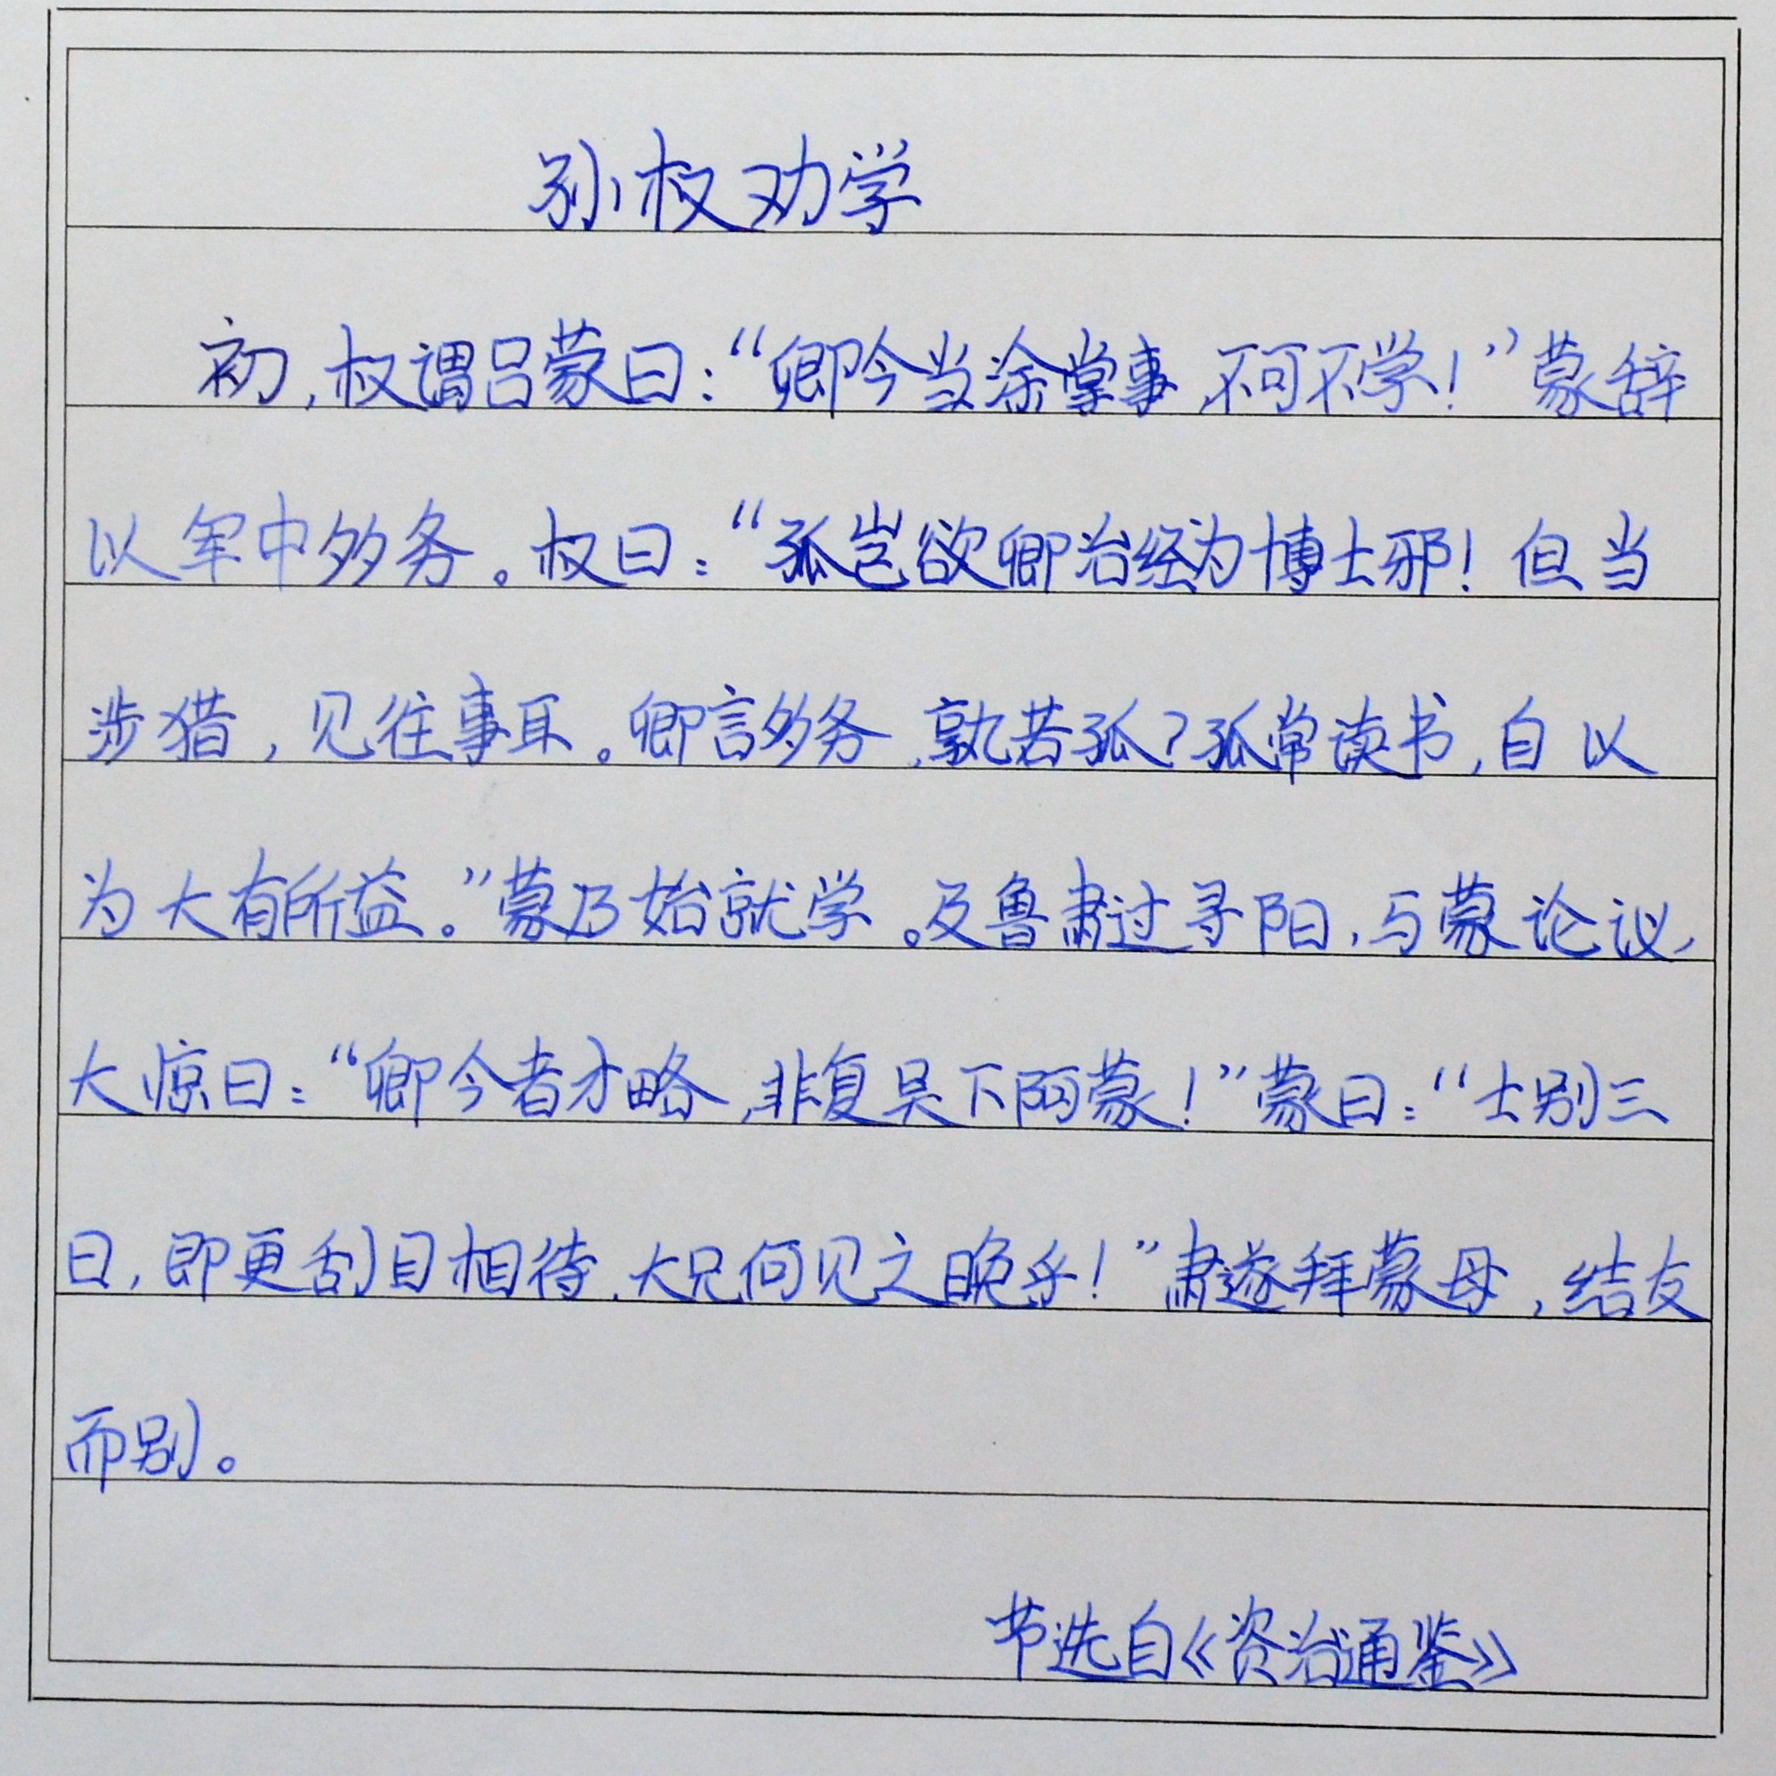 孙权劝学
初,权谓吕蒙曰:“卿今当涂掌事,不可不学!”蒙辞
以军中多务。权曰:“孤岂欲卿治经为博士邪!但当
涉猎,见往事耳。卿言多务,孰若孤?孤常读书,自以
为大有所益。”蒙乃始就学。及鲁肃过寻阳,与蒙论议,
大惊曰:“卿今者才略,非复吴下阿蒙!”蒙曰:“士别三
日,即更刮目相待,大兄何见之晚乎!”肃遂拜蒙母,结友
而别。
节选自《资治通鉴》